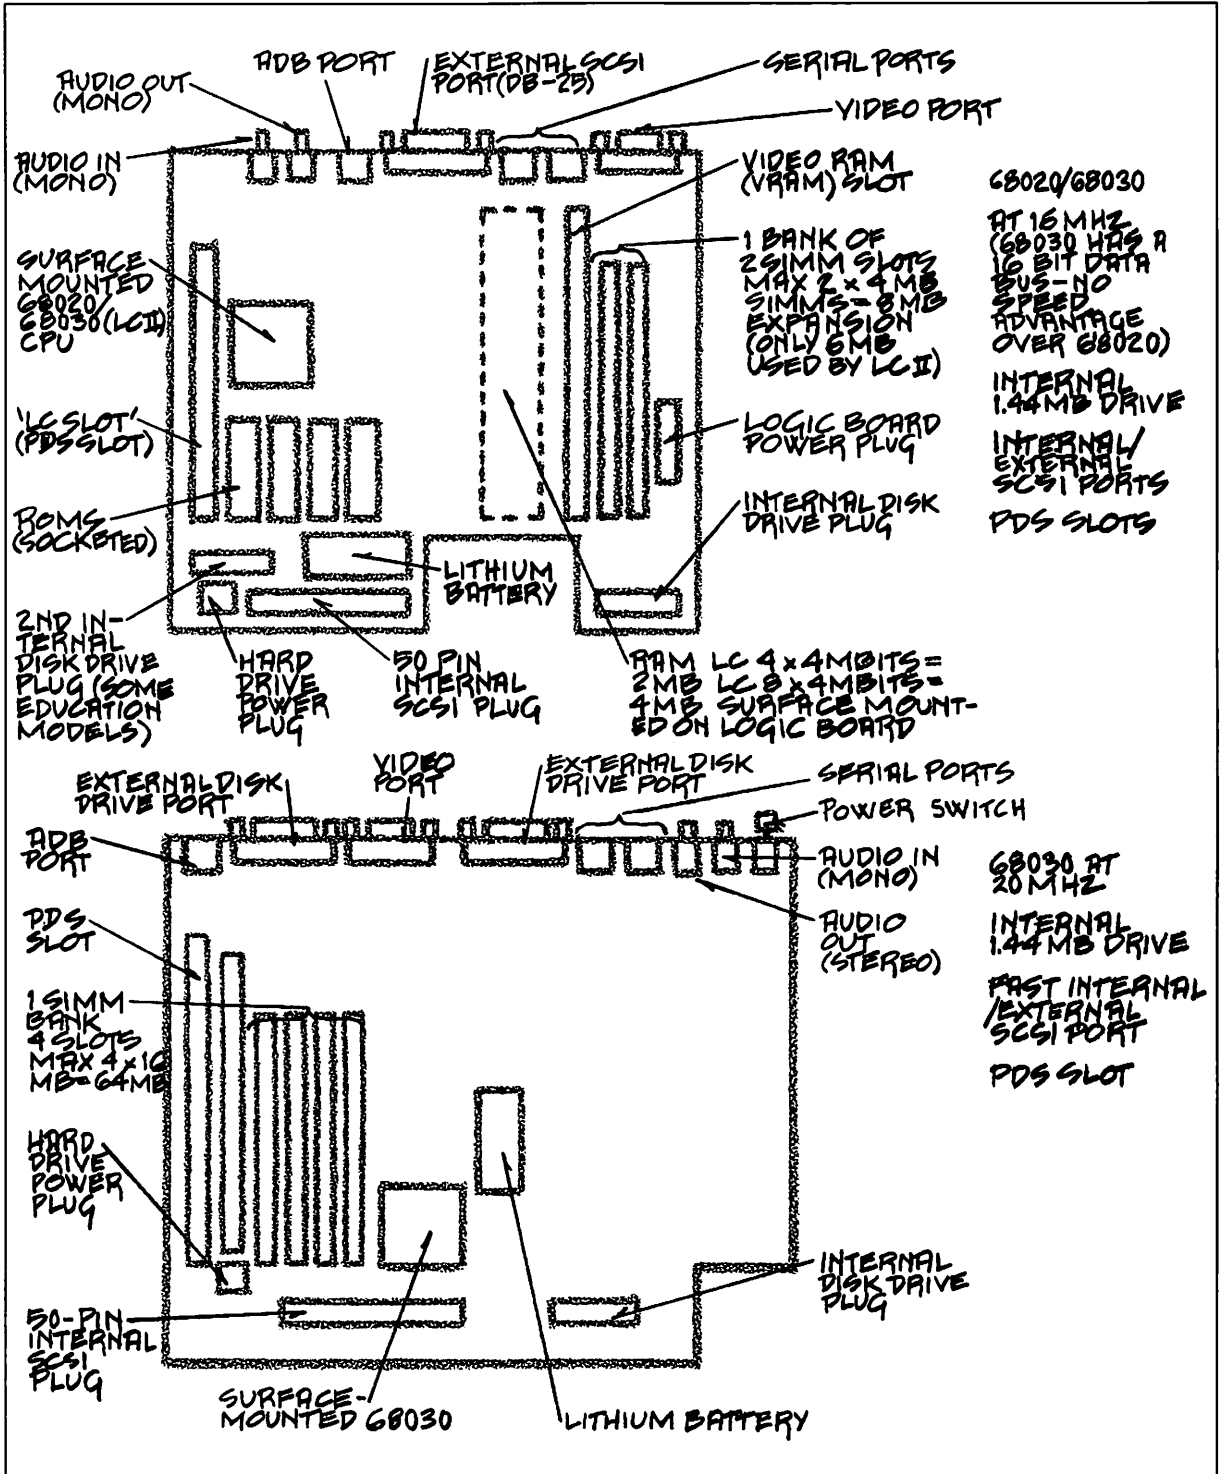 AUDIO OUT
(MONO)
ADB PORT
EXTERNAL SCSI
PORT (DB-25)
SERIAL PORTS
VIDEO PORT
AUDIO IN
(MONO)
VIDEO RAM
(VRAM) SLOT
SURFACE
MOUNTED
68020/
68030 (LC II)
CPU
1 BANK OF
2 SIMM SLOTS
MAX 2 x 4 MB
SIMMS = 8 MB
EXPANSION
(ONLY 6 MB
USED BY LC II)
'LC SLOT'
(PDS SLOT)
LOGIC BOARD
POWER PLUG
ROMS
(SOCKETED)
INTERNAL DISK
DRIVE PLUG
LITHIUM
BATTERY
2ND IN-
TERNAL
DISK DRIVE
PLUG (SOME
EDUCATION
MODELS)
HARD
DRIVE
POWER
PLUG
50 PIN
INTERNAL
SCSI PLUG
RAM LC 4 x 4 MBITS =
2 MB LC 8 x 4 MBITS =
4 MB SURFACE MOUNT-
ED ON LOGIC BOARD
68020/68030
AT 16 MHZ
(68030 HAS A
16 BIT DATA
BUS-NO
SPEED
ADVANTAGE
OVER 68020)
INTERNAL
1.44 MB DRIVE
INTERNAL/
EXTERNAL
SCSI PORTS
PDS SLOTS
EXTERNAL DISK
DRIVE PORT
VIDEO
PORT
EXTERNAL DISK
DRIVE PORT
SERIAL PORTS
POWER SWITCH
ADB
PORT
AUDIO IN
(MONO)
PDS
SLOT
AUDIO
OUT
(STEREO)
1 SIMM
BANK
4 SLOTS
MAX 4 x 16
MB = 64 MB
HARD
DRIVE
POWER
PLUG
50-PIN
INTERNAL
SCSI
PLUG
SURFACE-
MOUNTED 68030
LITHIUM BATTERY
INTERNAL
DISK DRIVE
PLUG
68030 AT
20 MHZ
INTERNAL
1.44 MB DRIVE
FAST INTERNAL
/EXTERNAL
SCSI PORT
PDS SLOT